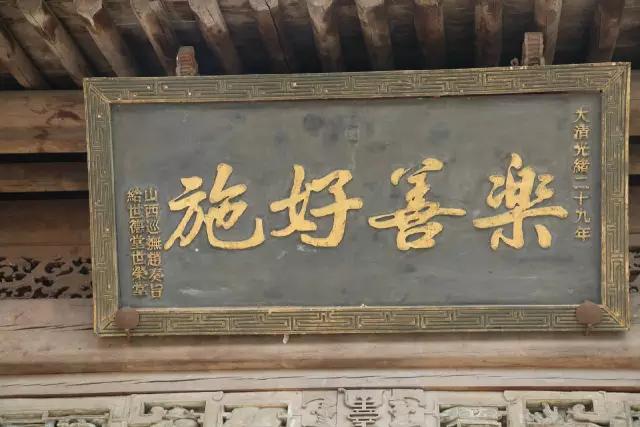 大清光緒二十九年
楽善好施
山西巡撫趙奏旨
給世德堂世榮堂